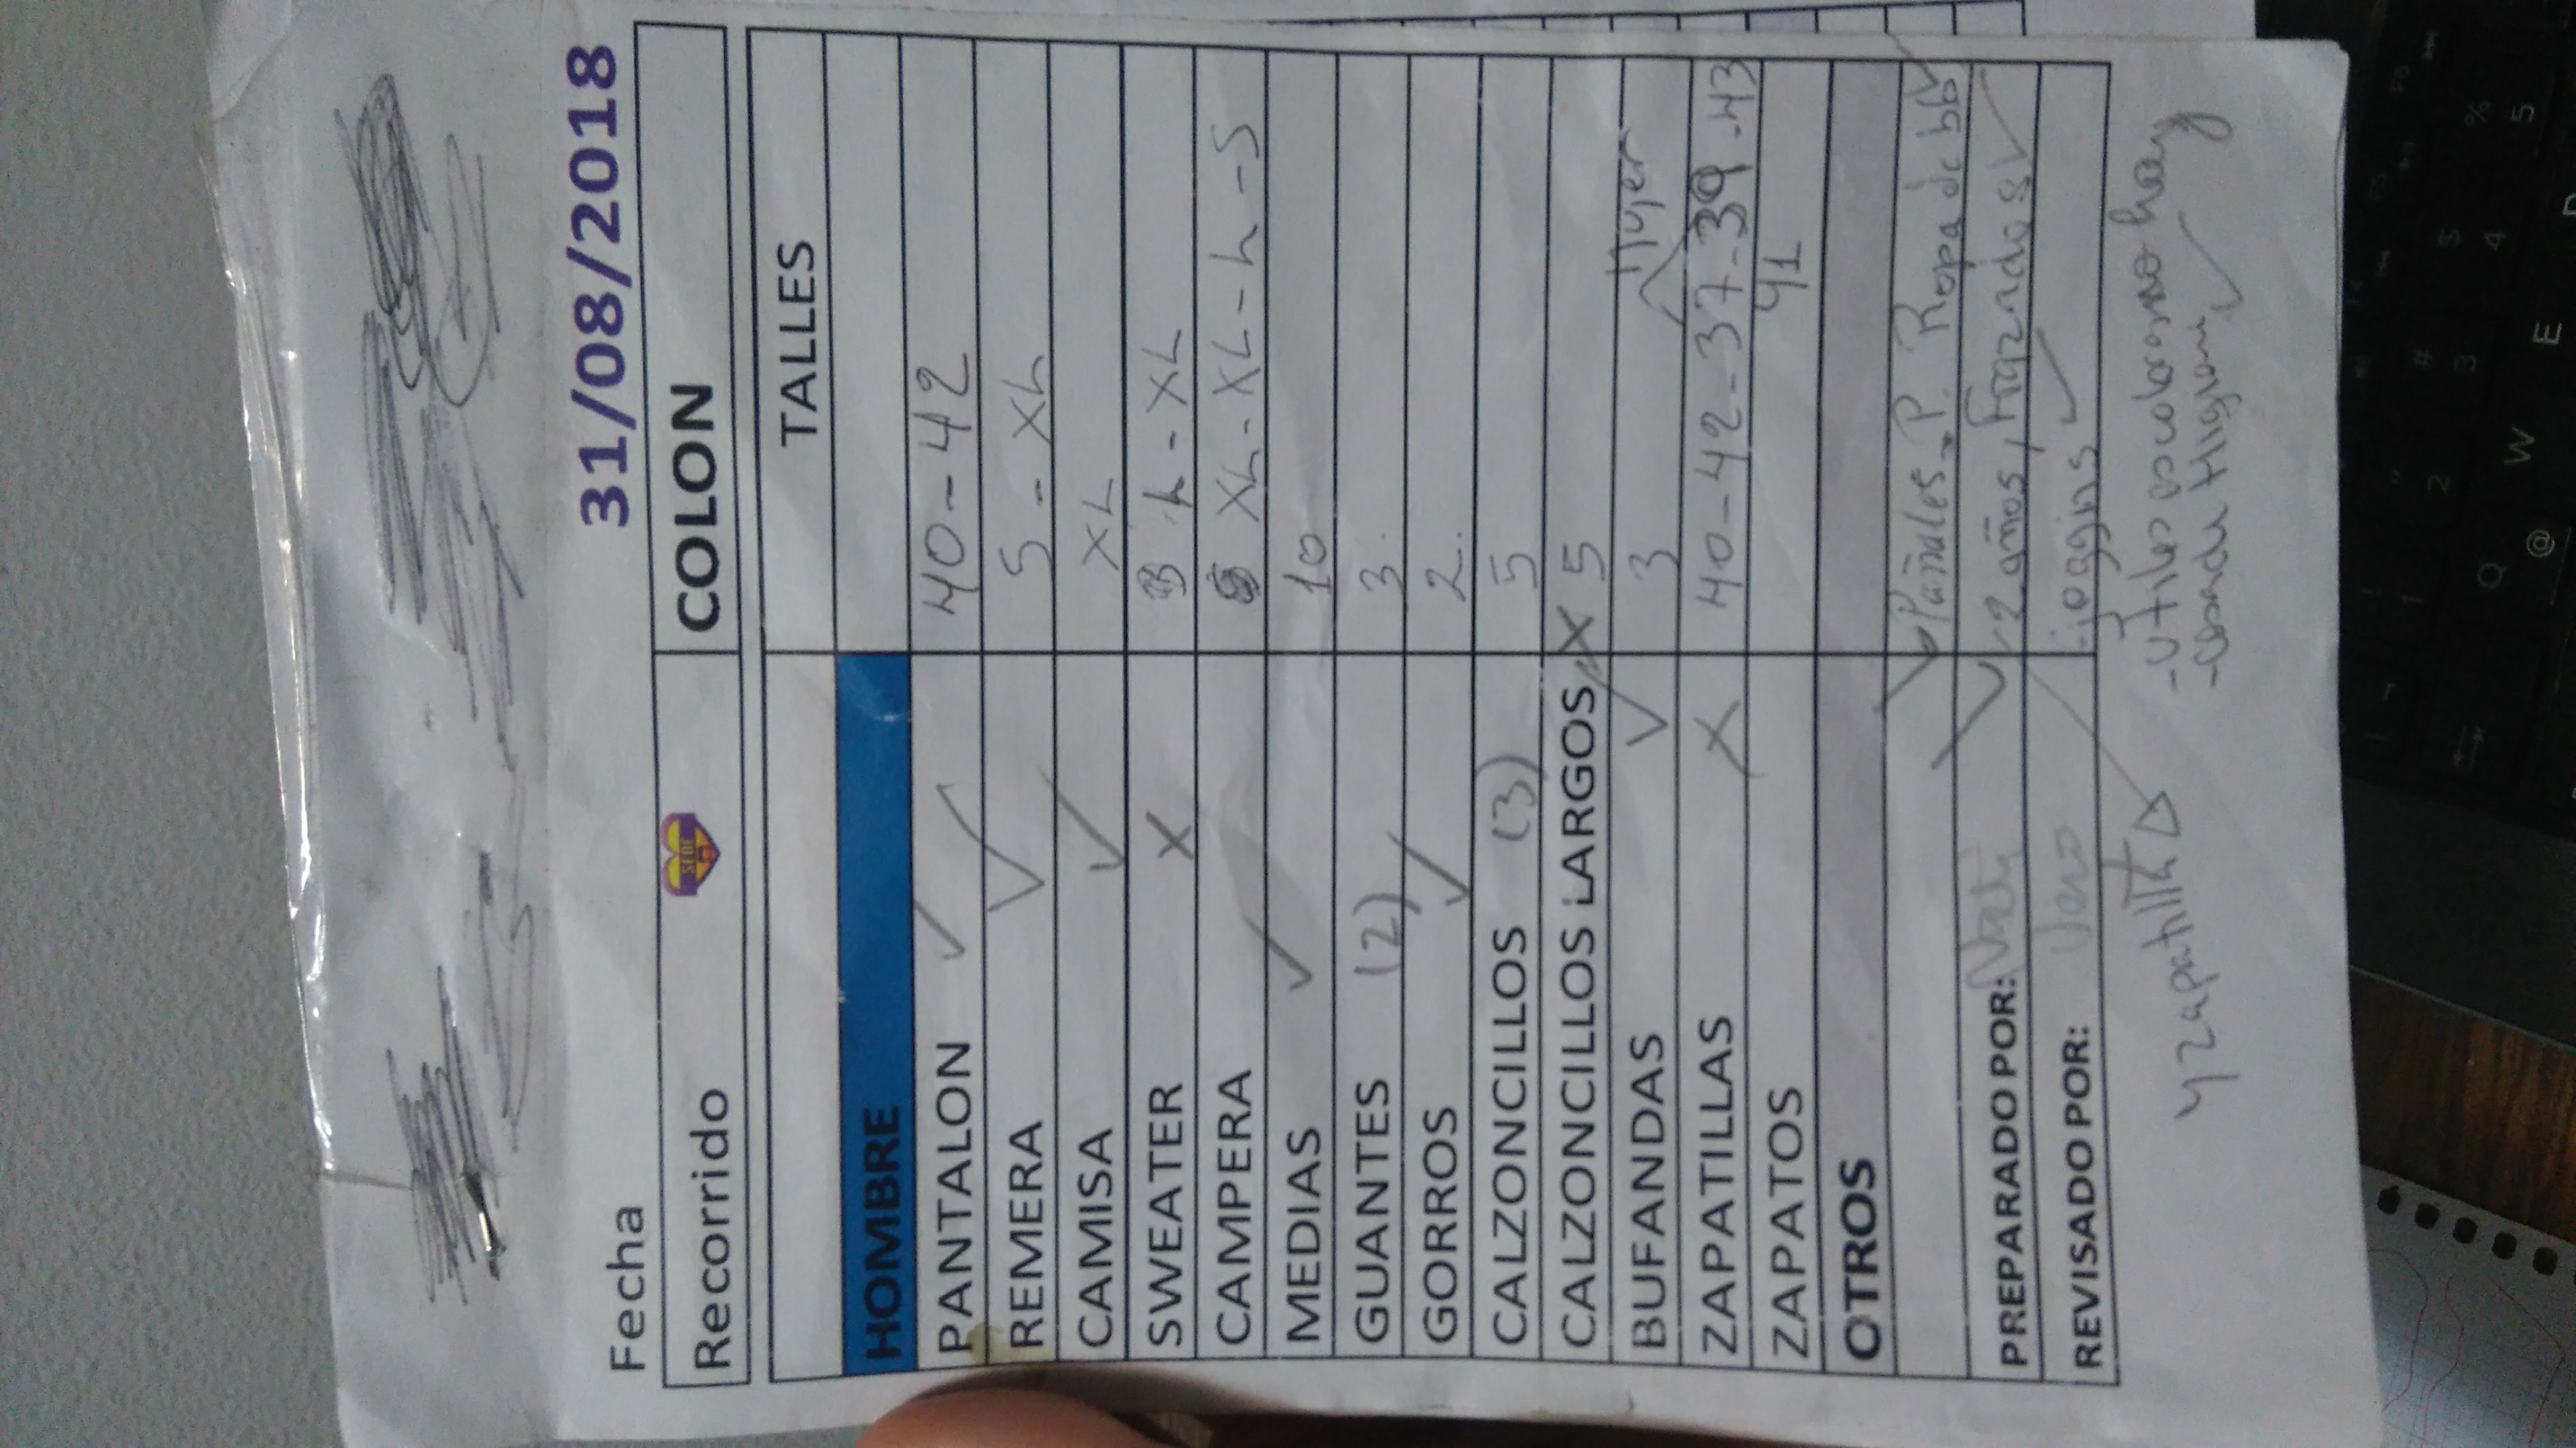 Fecha 31/08/2018
Recorrido SEDE COLON
TALLES
HOMBRE
PANTALON ✓ 40 - 42
REMERA ✓ S - XL
CAMISA ✓ XL
SWEATER X L - XL
CAMPERA XL - XL - L - S
MEDIAS ✓ 10
GUANTES (2) 3
GORROS ✓ 2
CALZONCILLOS (3) 5
CALZONCILLOS LARGOS X 5
BUFANDAS ✓ 3
Mujer
ZAPATILLAS X 40 - 42 - 37 - 39 - 43
ZAPATOS 41
OTROS
Pañales - P. Ropa de bb ✓
PREPARADO POR: Nati 2 años, Frazadas ✓
REVISADO POR: Vero - joggins ✓
y zapatilla - utiles escolares no hay
- cosa de Higiene ✓
Q W E
@
1 2 3 4 5
" # $ %